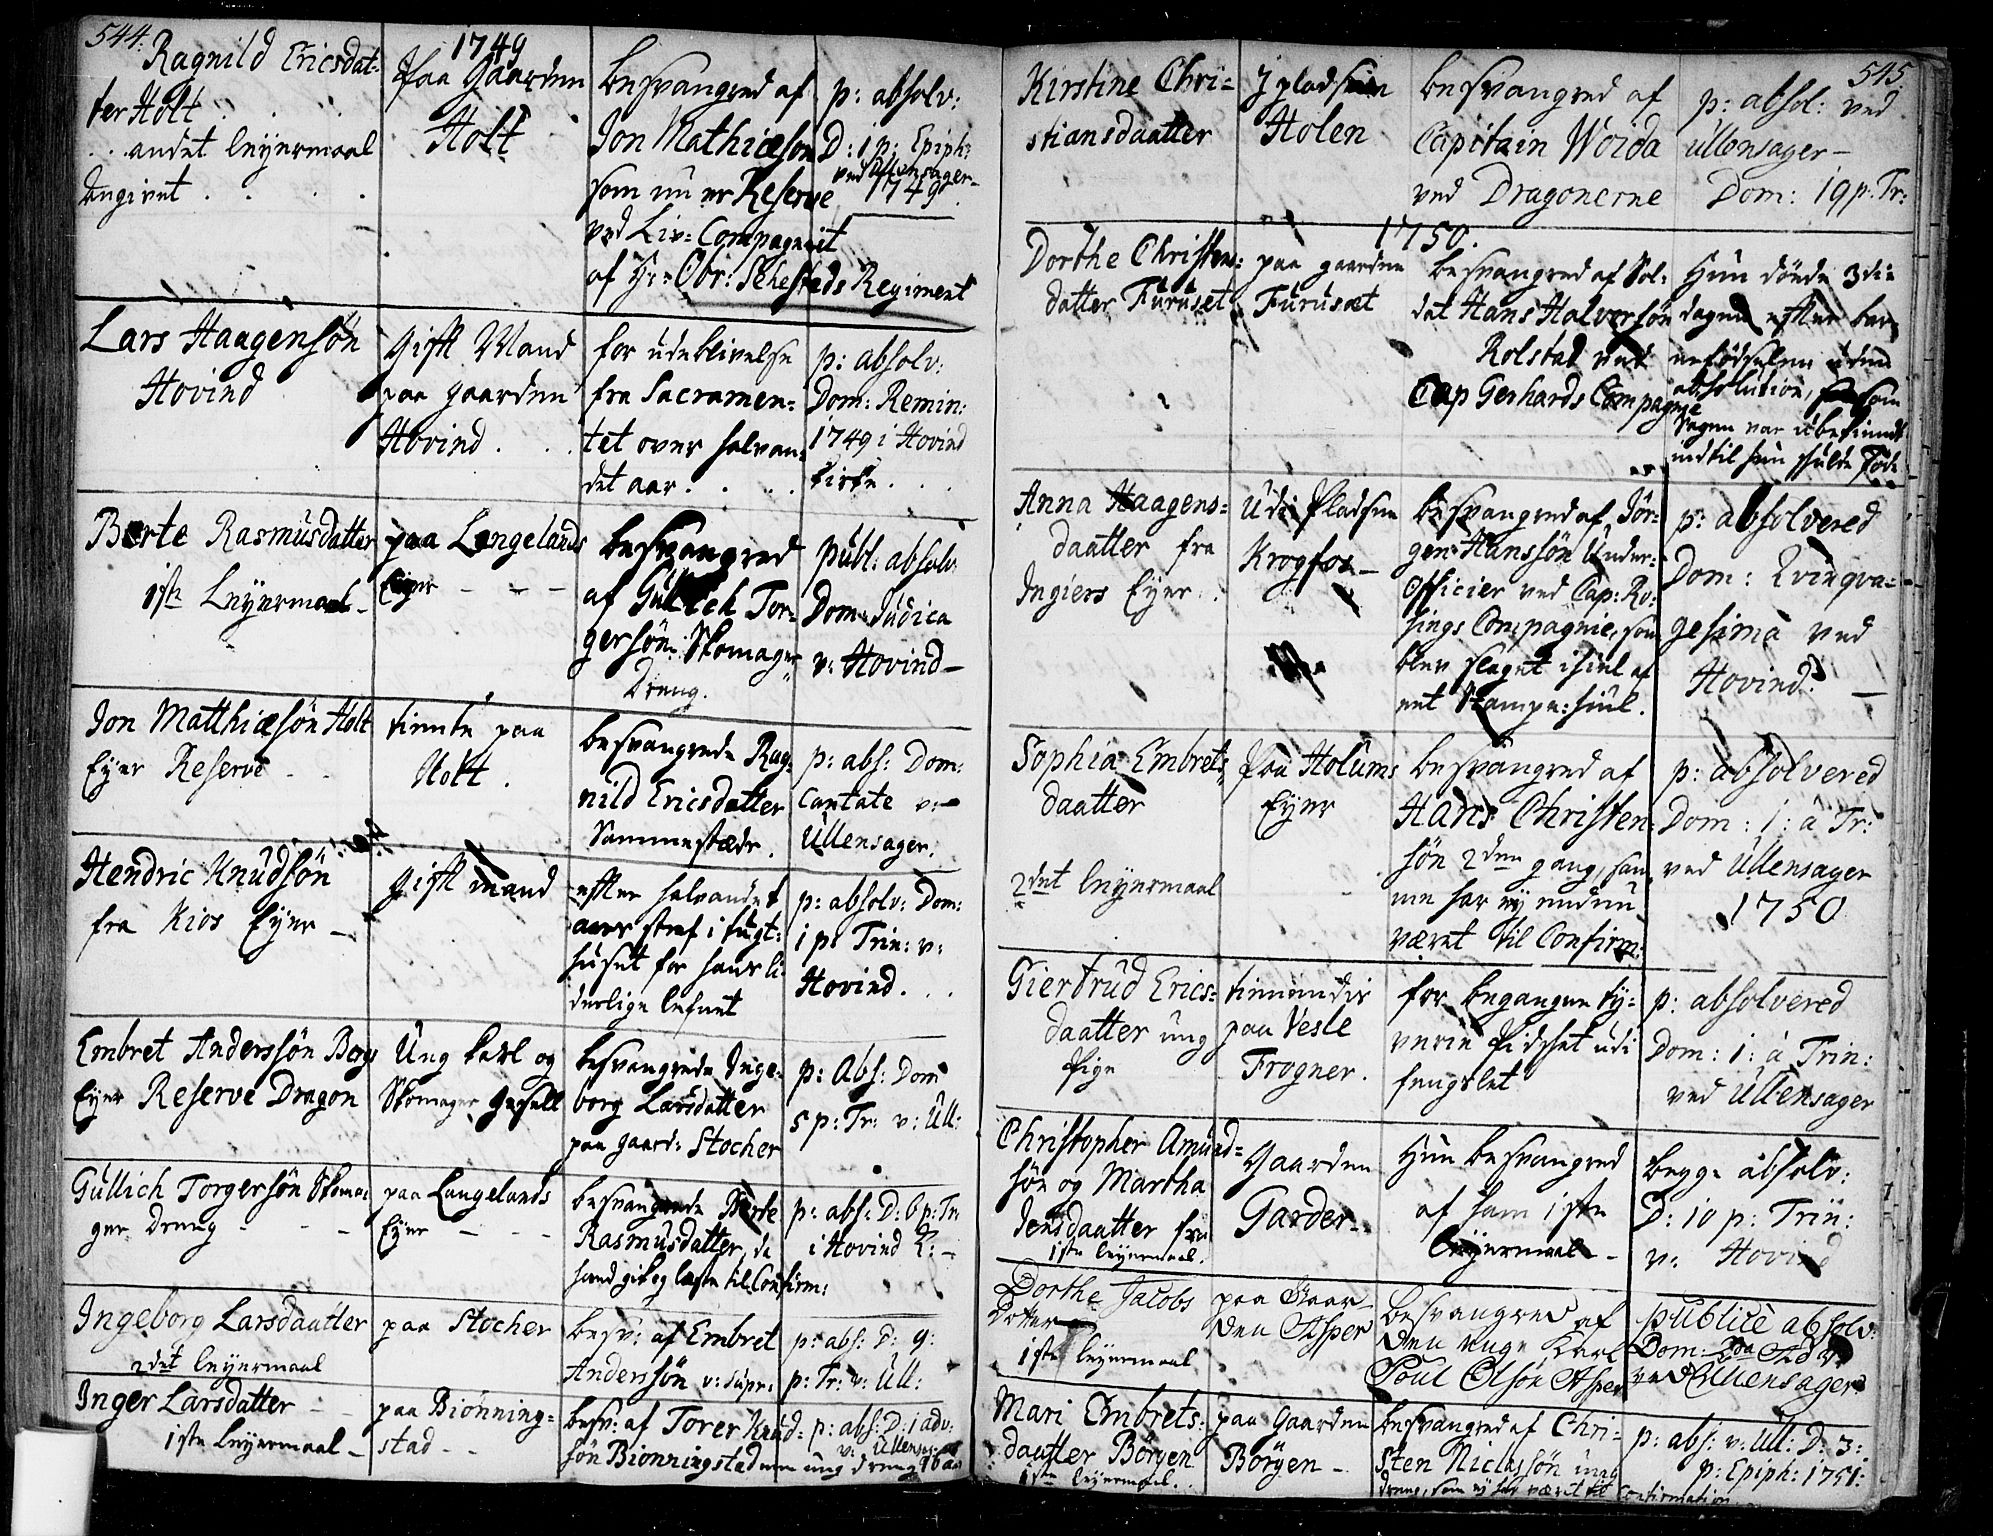 544.
1749
Ragnild Ericsdat-
ter Holt . . .
. . andet leyermaal
angivet . . .
Paa Gaarden
Holt
besvangred af
Jon Mathiæsøn
som nu er Reserve
ved Liv= Compagniet
af Hr= Obr: Schesteds Regiment
p: absolv:
D: 1 p: Epiph:
ved Ullensager
1749.
Lars Haagensøn
Hovind
Gift Mand
paa gaarden
Hovind . .
for udeblivelse
fra Sacramen=
tet over halvan=
det aar . . .
p: absolv:
Dom: Remin:
1749 i Hovind
kirke . . .
Berte Rasmusdatter
1ste Leyermaal -
paa Langelands
Eyer - - -
besvangred
af Gullich Tor=
gersøn: Skomager
Dreng.
publ: absolv:
Dom: Judica
v: Hovind -
Jon Matthiæsøn Holt
Eyer Reserve - -
tiente paa
Holt .
besvangrede Rag=
nild Ericsdatter
Sammestæds.
p: abs: Dom:
Cantate v:
Ullensager.
Hendric Knudsøn
fra Kios Eyer -
gift mand
efter halvandet
aars straf i tugt=
huset for hans li=
derlige lefnet
p: absolv: Dom:
1 p: Trin: v:
Hovind . . .
Embret Anderssøn Berg
Eyer Reserve Dragon
Ung karl og
Skomager Gesell
besvangrede Inge=
borg Larsdatter
paa gaard: Stocher
p: Abs: Dom
5 p: Tr: v: Ull:
Gullich Torgersøn Skoma=
ger dreng - - -
paa Langelands
Eyer - - -
besvangrede Berte
Rasmusdatter, da
hand gik og læste til Confirm:
p: abs: D: 6 p: Tr
i Hovind K: -
Ingeborg Larsdaatter
2det leyermaal
paa Stocher
besv: af Embret
Anderssøn v: supr:
p: abs: D: 9:
p: Tr: v: Ull:
Inger Larsdatter - -
1ste leyermaal -
paa Biønning=
stad - -
besv: af Torer Knud=
søn Bionningstad en ung dreng 16 aar
p: abs: D: 1 adv:
v: Ullens:
545.
Kirstine Chri=
stiansdaatter
J pladsen
Holen
besvangred af
Capitain Woida
ved Dragonerne
p: absol: ved
Ullensager -
Dom: 19 p: Tr:
1750.
Dorthe Christens=
datter Furuset
paa gaarden
Furusæt
besvangred af Sol=
dat Hans Halversøn
Rolstad ved
Cap Gerhards Compagnie
Hun døede 3die
dagen efter bar=
nefødselen uden
absolution, som
Sagen var ubekiendt
indtil hun skulde føde
Anna Haagens=
daatter fra
Ingiers Eyer .
Udi Pladsen
Krogfos -
besvangred af Jør=
gen Hanssøn Under=
Officier ved Cap: Ro=
sings Compagnie, som
blev slaget ihiel af
eet Stampe: hiul.
p: absolvered
Dom: Qvinqva=
gesima ved
Hovind. -
Sophia Embrets
daatter
2det leyermaal
Paa Holums
Eyer
besvangred af
Hans Christen=
søn 2den gang, ham
me har ej endnu
været til Confirm:
p: absolvered
Dom: 1: à Tr:
ved Ullensager
1750
Giertrud Erics=
daatter ung
Pige
tienendis
paa Vesle
Frogner.
for begangne ty=
verie pidsket udi
fengslet
p: absolvered
Dom: 1: à Trin:
ved Ullensager
Christopher Amund=
søn og Martha
Jensdaatter fra
1ste leyermaal.
Gaarden
Garder -
Hun besvangred
af ham 1ste
leyermaal -
begge absolv:
D: 10 p: Trin:
v: Hovind
Dorthe Jacobs
Dotter
1ste leyermaal
paa Gaar
den Asper
besvangred af
den unge Karl
Poul Olsøn Asper
publicè absolv:
Dom: 2da Adv
ved Ullensager
Mari Embrets=
daatter Børgen
1ste leyermaal. .
paa Gaarden
Børgen -
besvangred af Chri=
sten Niclassøn ung
dreng, som ej har været til Confirmation
p: abs: v: Ull: D: 3:
p: Epiph: 1751: